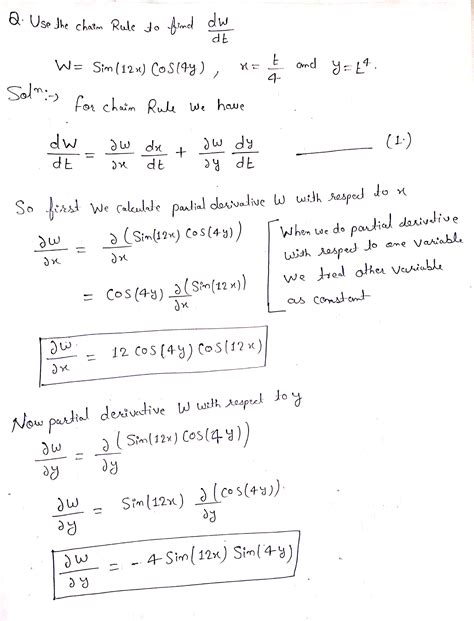 Q. Use the chain Rule to find dw/dt
W = Sin(12x) Cos(4y), x = t/4 and y = t⁴.
Solⁿ:→
for chain Rule we have
dw/dt = ∂w/∂x dx/dt + ∂w/∂y dy/dt ——— (1.)
So first We calculate partial derivative W with respect to x
∂w/∂x = ∂(Sin(12x) Cos(4y))/∂x
= Cos(4y) ∂(Sin(12x))/∂x
[When we do partial derivative
with respect to one variable
We treat other variable
as constant
∂w/∂x = 12 Cos(4y) Cos(12x)
Now partial derivative W with respect to y
∂w/∂y = ∂(Sin(12x) Cos(4y))/∂y
∂w/∂y = Sin(12x) ∂(Cos(4y))/∂y.
∂w/∂y = - 4 Sin(12x) Sin(4y)